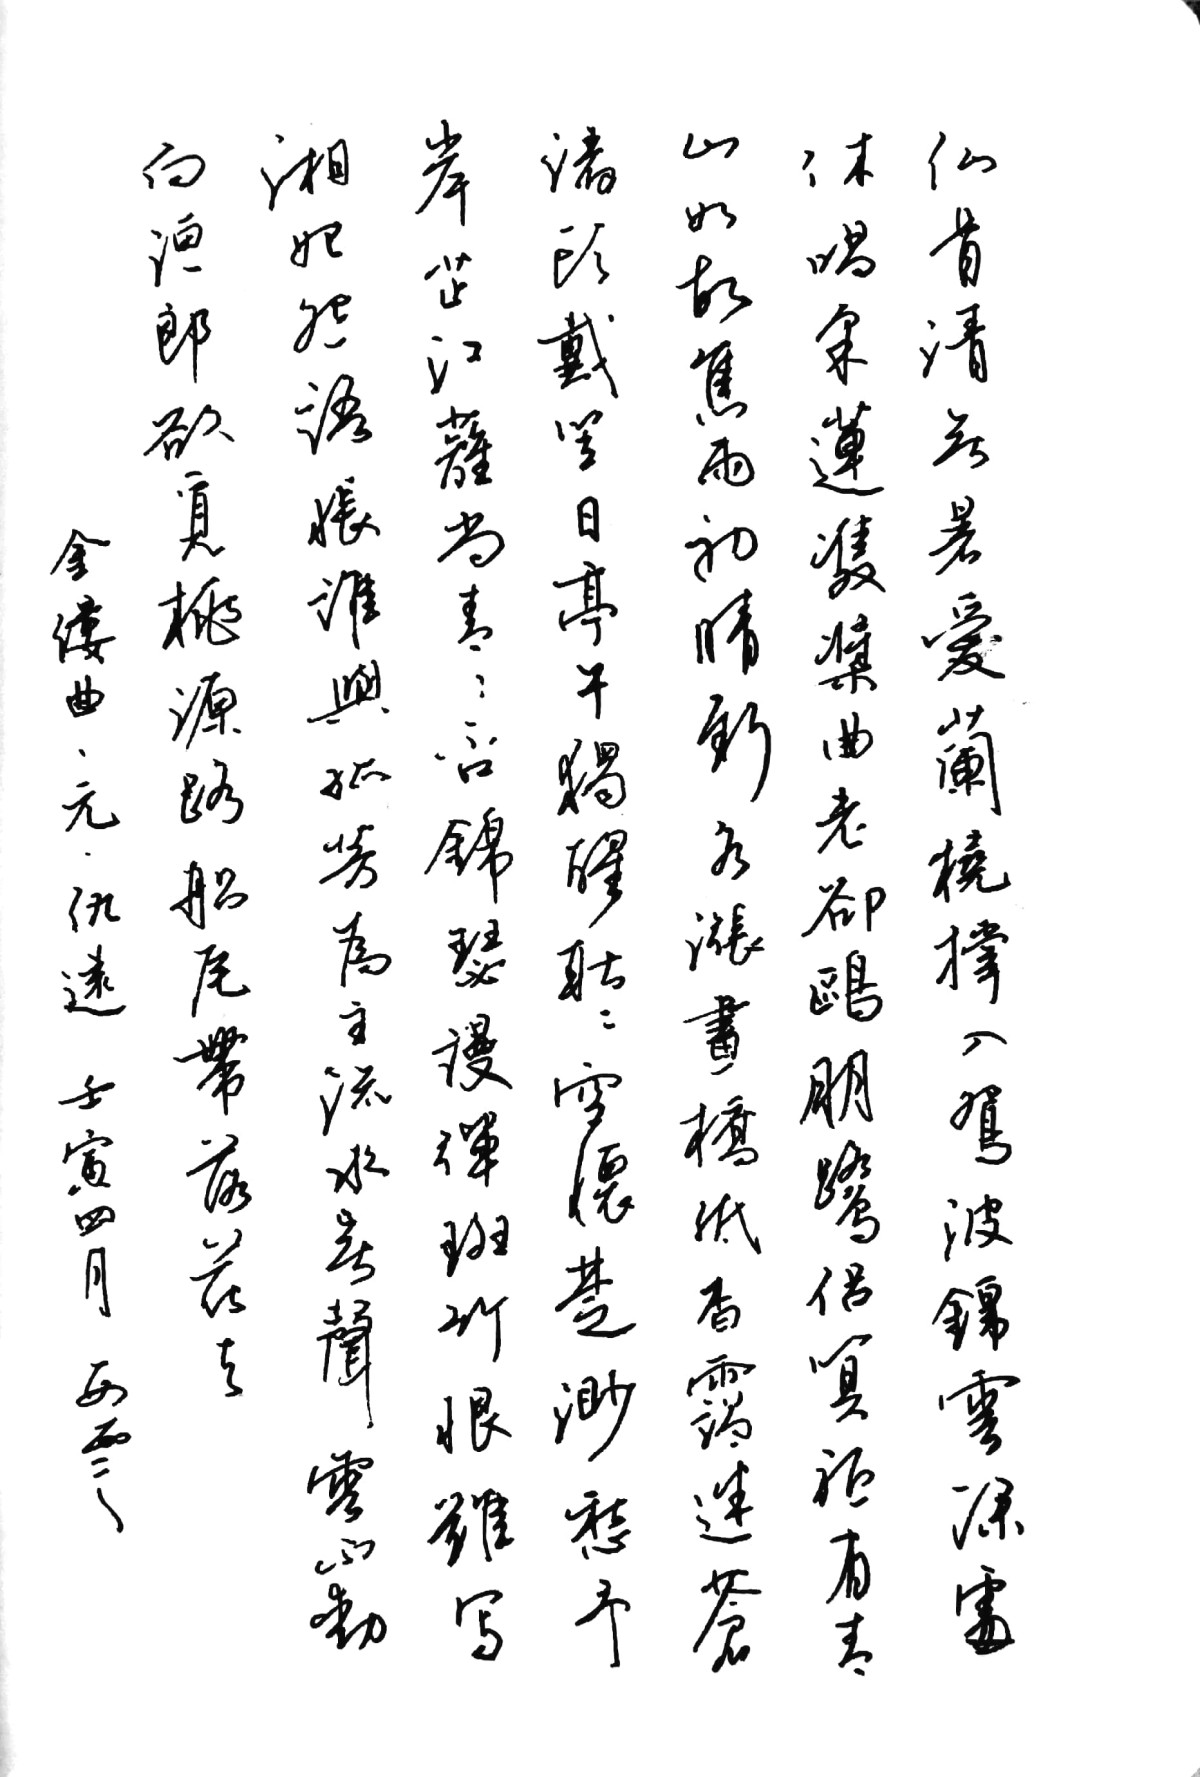 仙骨清無暑愛蘭橈撐入鴛波錦雲深處
休唱采蓮雙槳曲老卻鷗朋鷺侶算祇有青
山如故舊雨初晴新水漲畫橋低香靄迷蒼
渚頭戴笠日亭午獨醒耿〻空懷楚渺愁予
岸芷江蘺尚青〻否錦瑟謾彈斑竹恨難写
湘妃怨語悵誰與孤芳為主流水無聲雲不動
向漁郎欲覓桃源路船尾帶落花去
金縷曲、元、仇遠 壬寅四月